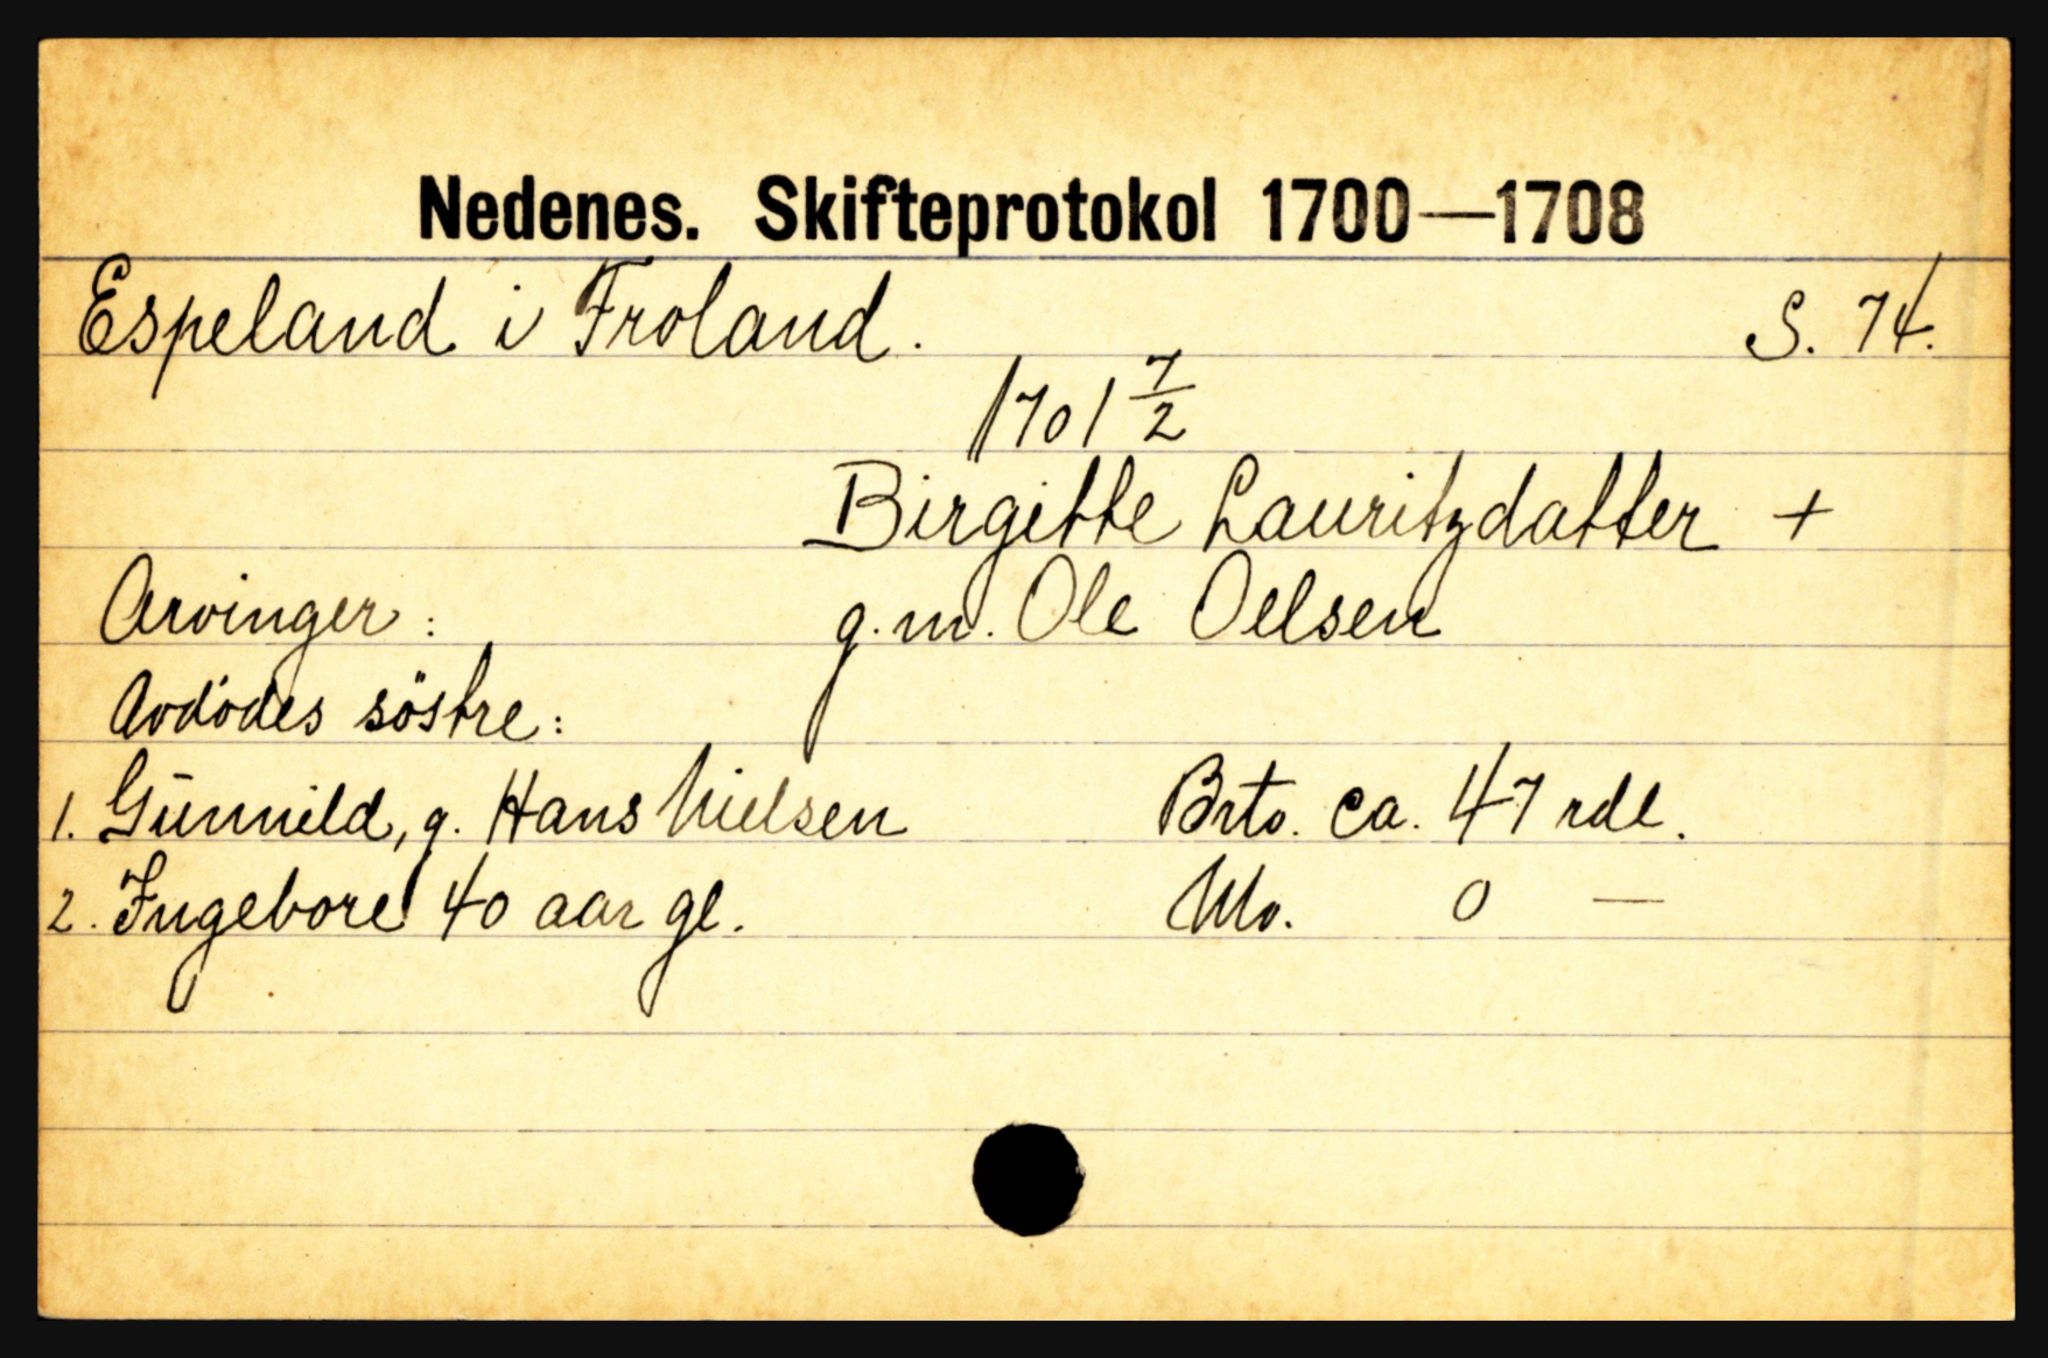 Nedenes. Skifteprotokol 1700—1708
Espeland i Froland. S. 74.
1701 7/2
Birgitte Lauritzdatter +
Arvinger: g.m. Ole Oelsen
Avdödes söstre:
1. Gunnild, g. Hans Nielsen Brto. ca. 47 rdl.
2. Ingebore 40 aar gl. Nto. 0 —